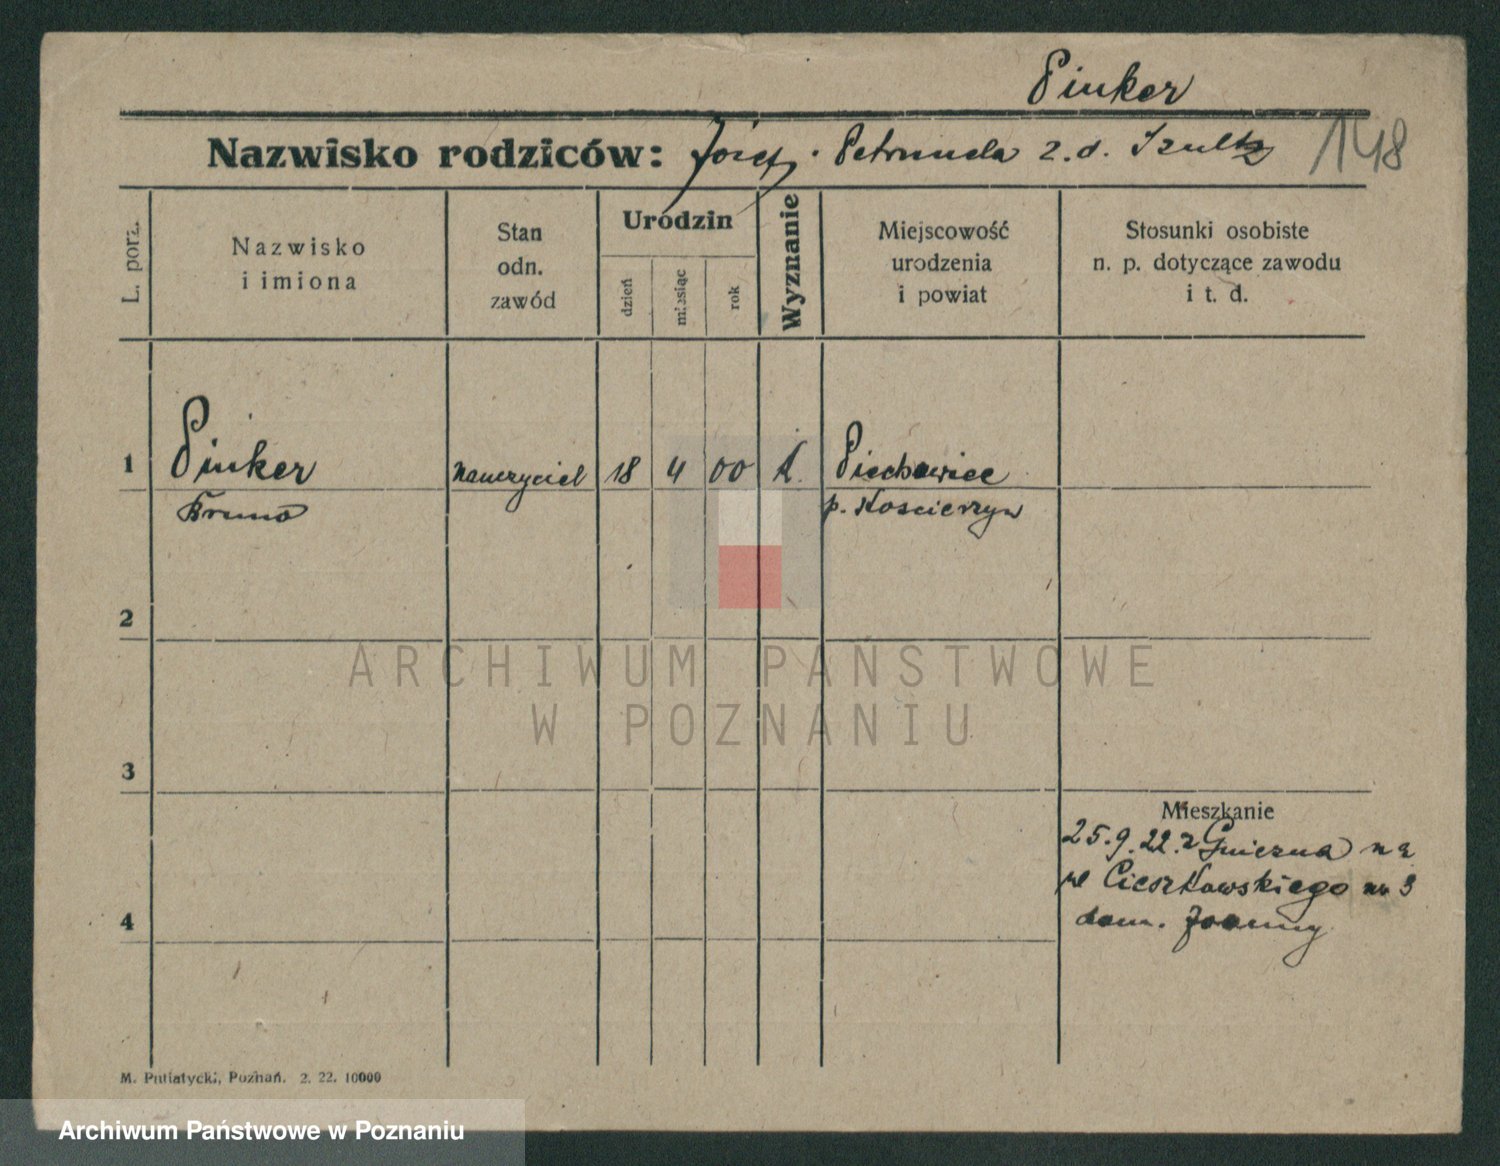 Pinker
Nazwisko rodziców: Józef. Petronela z. d. Szultz 148
L. porz.
Nazwisko
i imiona
Stan
odn.
zawód
Urodzin
dzień
miesiąc
rok
Wyznanie
Miejscowość
urodzenia
i powiat
Stosunki osobiste
n. p. dotyczące zawodu
i t. d.
1 Pinker nauczyciel 18 4 00 Piechowice
Bruno p. Kościerzyn
2
ARCHIWUM PAŃSTWOWE
W POZNANIU
3
Mieszkanie
25.9.22. z Gniezna na
Cieszkowskiego nr 3
4
M. Putiatycki, Poznań. 2. 22. 10000
Archiwum Państwowe w Poznaniu